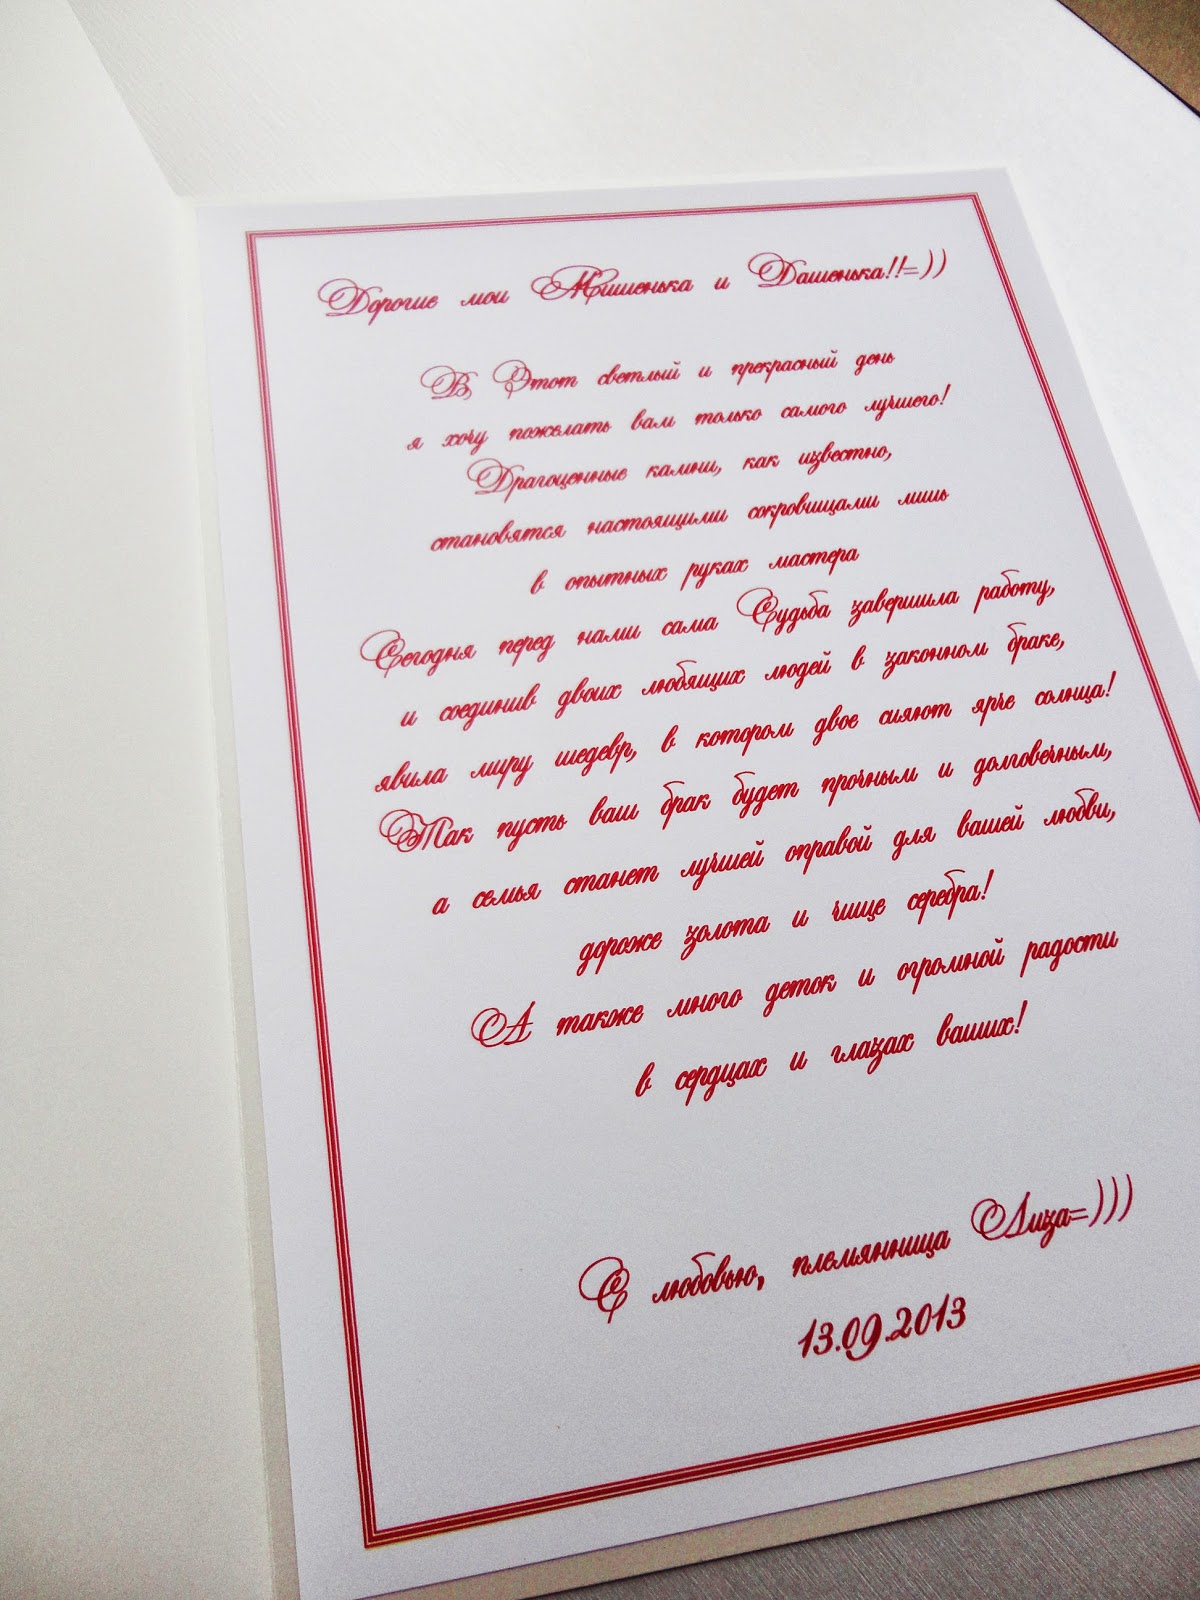 Дорогие мои Мишенька и Дашенька!!=))
В Этот светлый и прекрасный день
я хочу пожелать вам только самого лучшего!
Драгоценные камни, как известно,
становятся настоящими сокровищами лишь
в опытных руках мастера
Сегодня перед нами сама Судьба завершила работу,
и соединив двоих любящих людей в законном браке,
явила миру шедевр, в котором двое сияют ярче солнца!
Так пусть ваш брак будет прочным и долговечным,
а семья станет лучшей оправой для вашей любви,
дороже золота и чище серебра!
А также много деток и огромной радости
в сердцах и глазах ваших!
С любовью, племянница Лиза=)))
13.09.2013